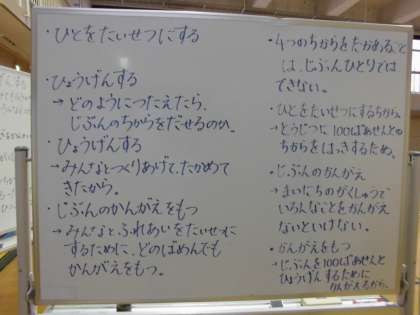 ・ひとをたいせつにする
・ひょうげんする
→どのようにつたえたら、
じぶんのちからをだせるのか。
・ひょうげんする
→みんなとつくりあげて、たかめて
きたから。
・じぶんのかんがえをもつ
→みんなとふれあいをたいせつに
するために、どのばめんでも
かんがえをもつ。
・4つのちからをたかめること
は、じぶんひとりでは
できない。
・ひとをたいせつにするちから。
→とうじつに100ぱあせんとの
ちからをはっきするため。
・じぶんのかんがえ
→まいにちのがくしゅうで
いろんなことをかんがえ
ないといけない。
・かんがえをもつ
→じぶんを100ぱあせんと
ひょうげんするために
かんがえるから。